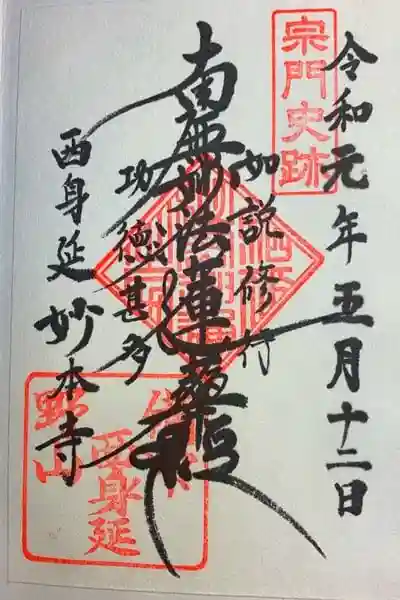 宗門史跡
令和元年五月十二日
如説修行
南無妙法蓮華経
功徳甚多
西身延
妙本寺
野山
西身延